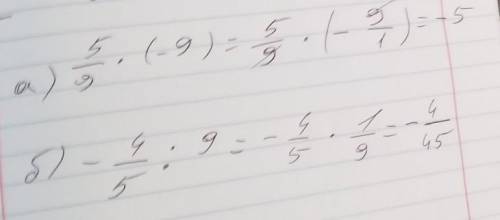 а) 5/9 · (-9) = 5/9 · (- 9/1) = -5
б) - 4/5 : 9 = - 4/5 · 1/9 = - 4/45